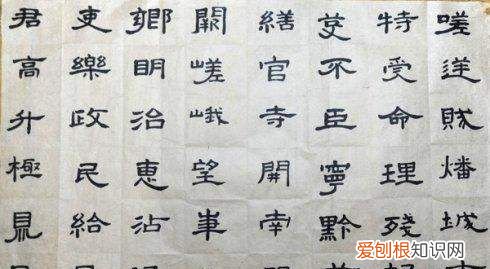 嗟逆賊燔城
特受命理殘
芟不臣寧黔
繕官寺開南
闕嵯峨望華
鄉明治惠沾
吏樂政民給
君高升極鼎
爱刨根知识网